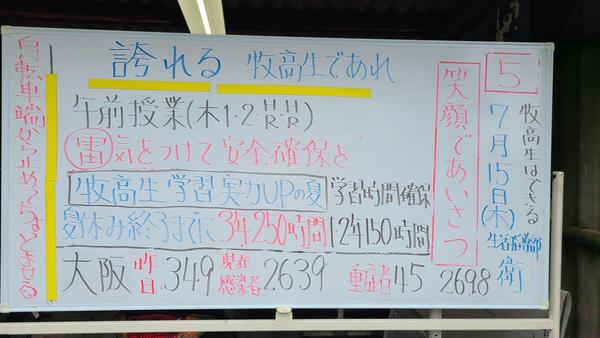 誇れる 牧高生であれ
午前授業(木1・2・HR・HR)
雷 気をつけて 安全確保を
牧高生 学習 実力UPの夏 学習時間確保
夏休み終了までに 3年250時間 12年150時間
大阪 昨日 349 現在感染者 2639 重症者 45 2698
笑顔であいさつ
5
牧高生はできる
7月15日(木)
生活指導部 衛
自転車端から止めてちゃっとさせる